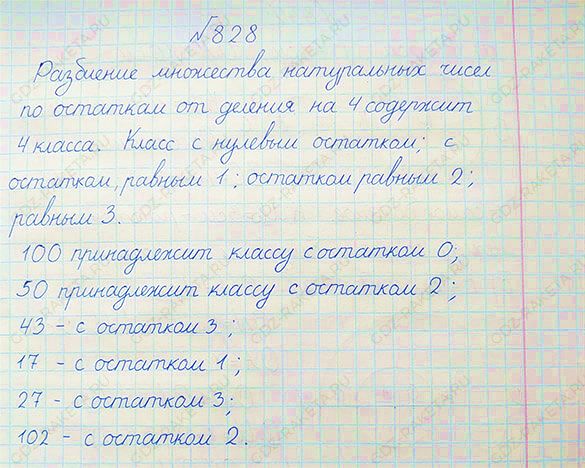 №828
Разбиение множества натуральных чисел
по остаткам от деления на 4 содержит
4 класса. Класс с нулевым остатком; с
остатком, равным 1; остатком равным 2;
равным 3.
100 принадлежит классу с остатком 0;
50 принадлежит классу с остатком 2;
43 - с остатком 3;
17 - с остатком 1;
27 - с остатком 3;
102 - с остатком 2.
GDZ-RAKETA.RU